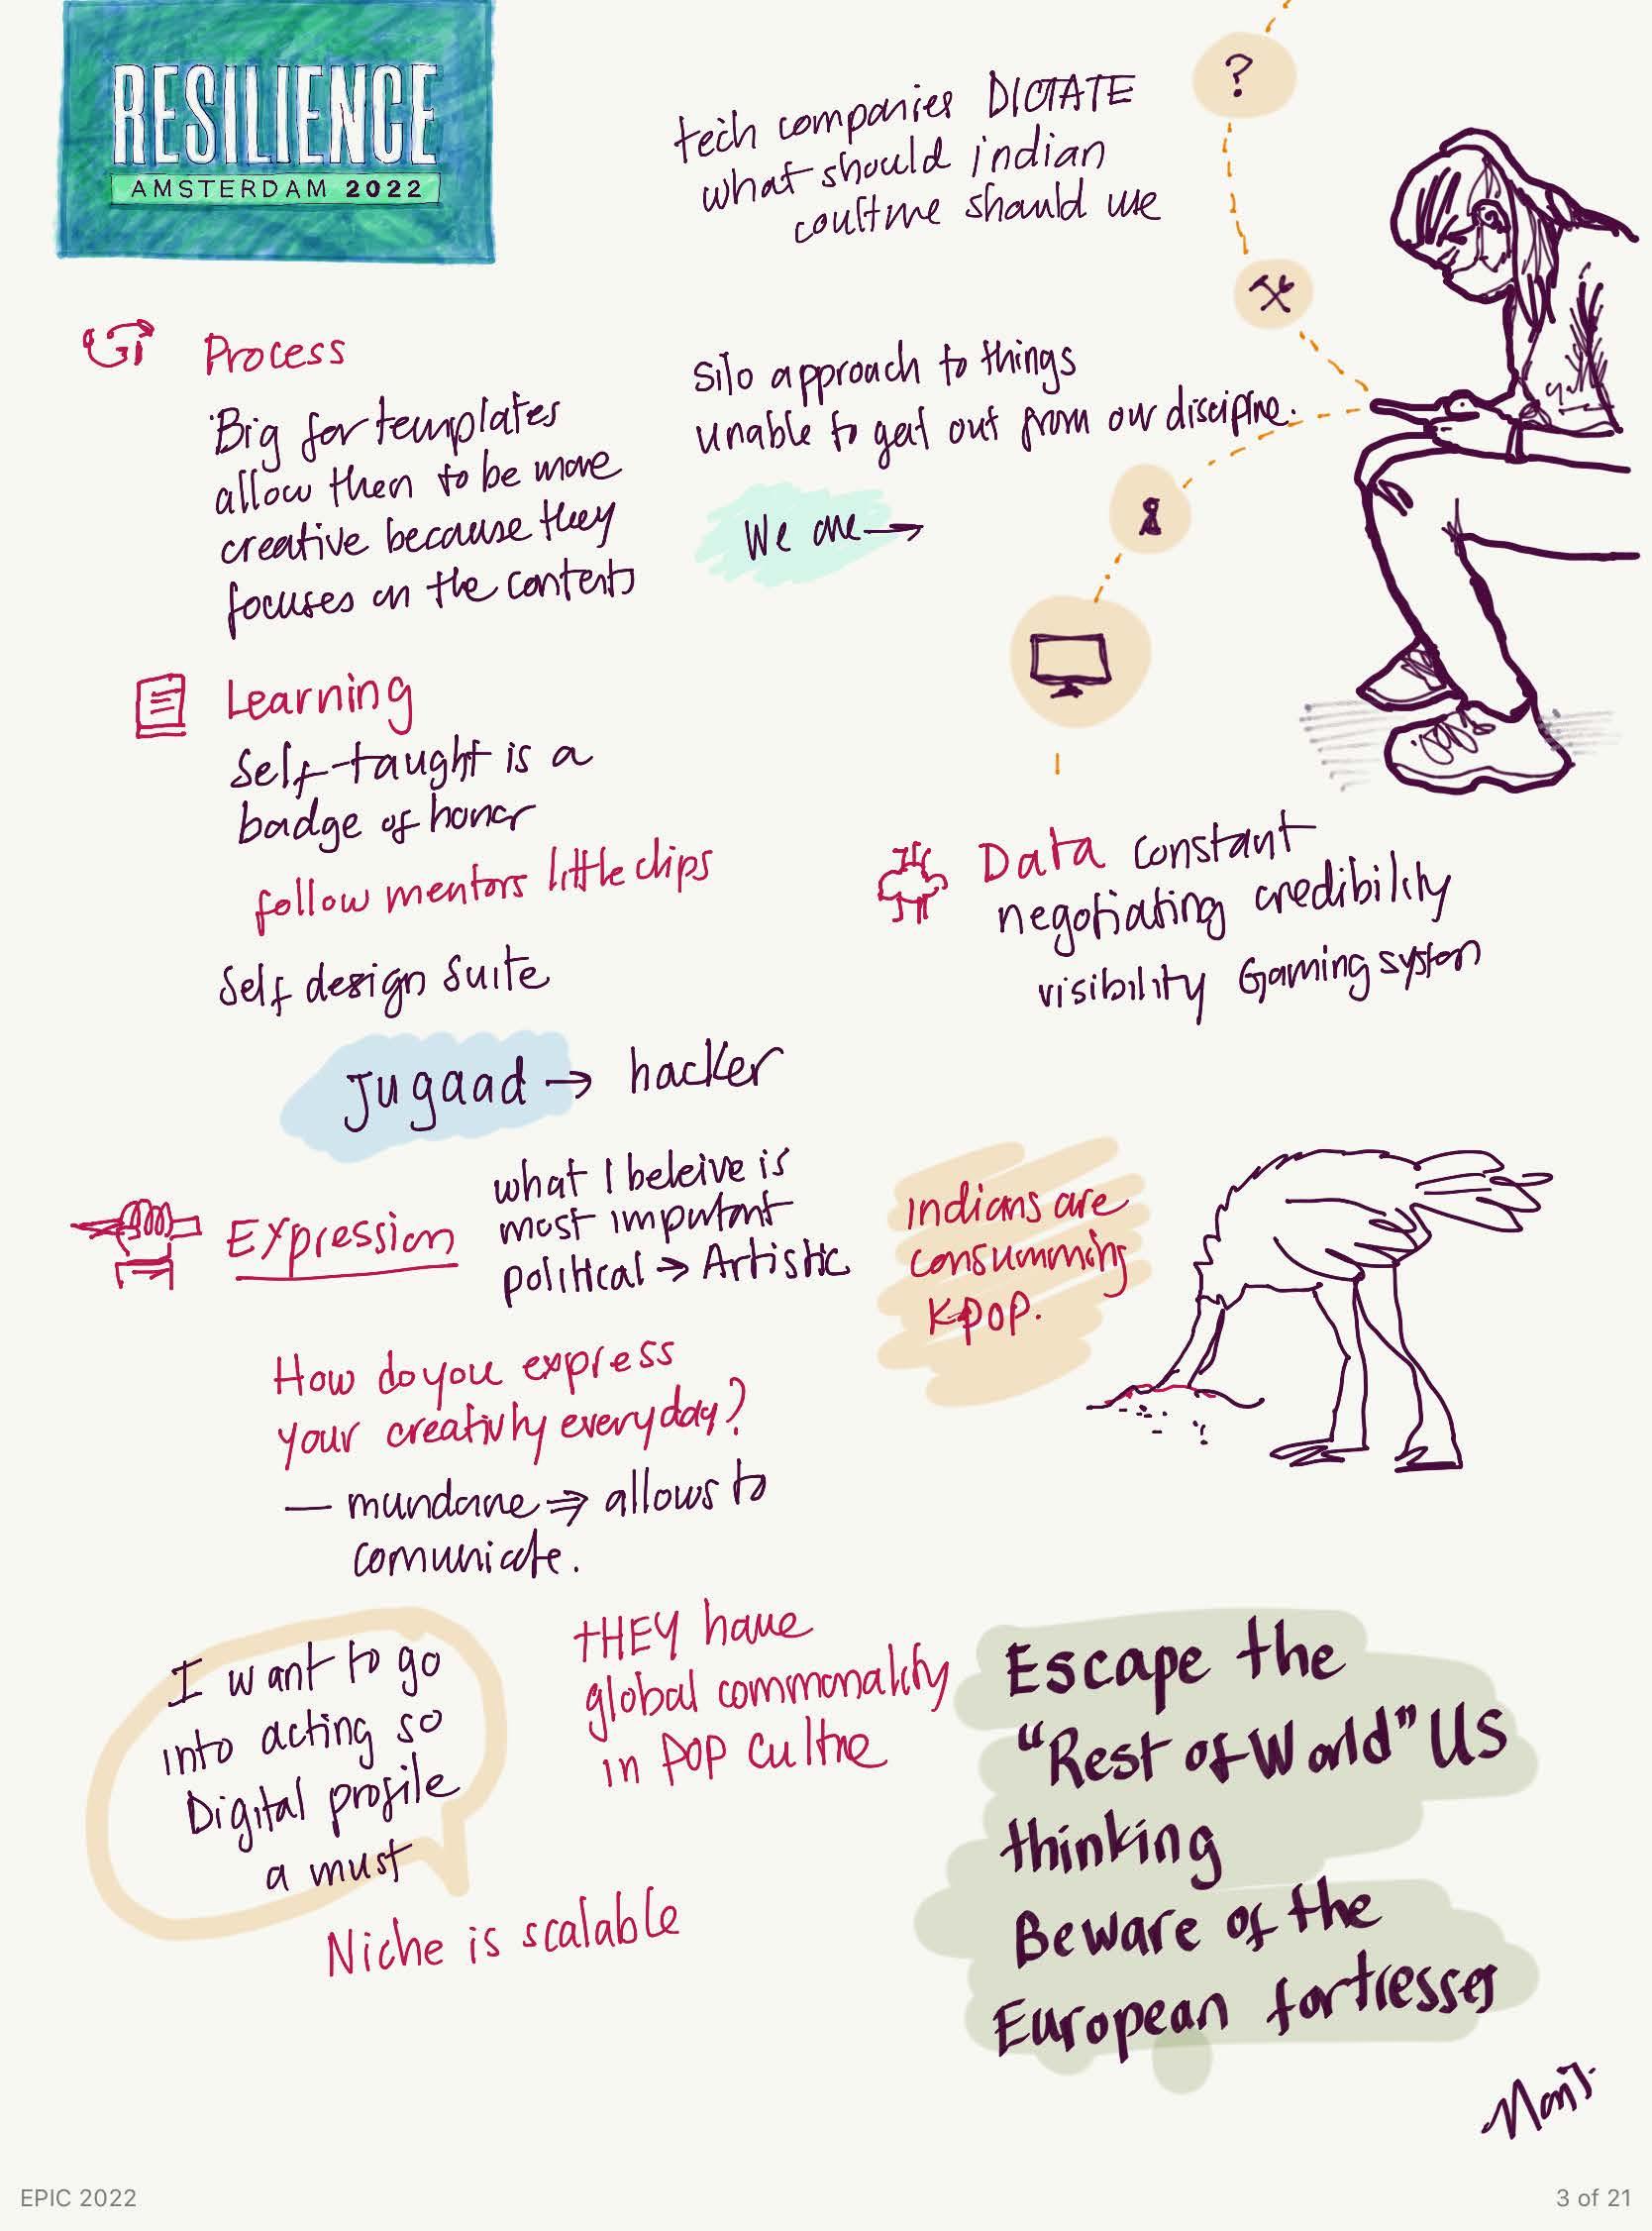 RESILIENCE
AMSTERDAM 2022
tech companies DICTATE
what should indian
should use
?
Process
Big for templates
allow then to be more
creative because they
focuses on the contents
Silo approach to things
unable to get out from our
We are →
Learning
Self-taught is a
badge of honor
follow mentors little clips
Self design Suite
Jugaad → hacker
Data constant
negotiating credibility
visibility Gaming system
Expression
what I beleive is
most important
political → Artistic
Indians are
consumming
Kpop.
How do you express
your creativity everyday?
— mundane ⇒ allows to
comunicate.
I want to go
into acting so
Digital profile
a must
tHEY have
global commonality
in POP
Niche is scalable
Escape the
"Rest of World" US
thinking
Beware of the
European fortresses
EPIC 2022
3 of 21